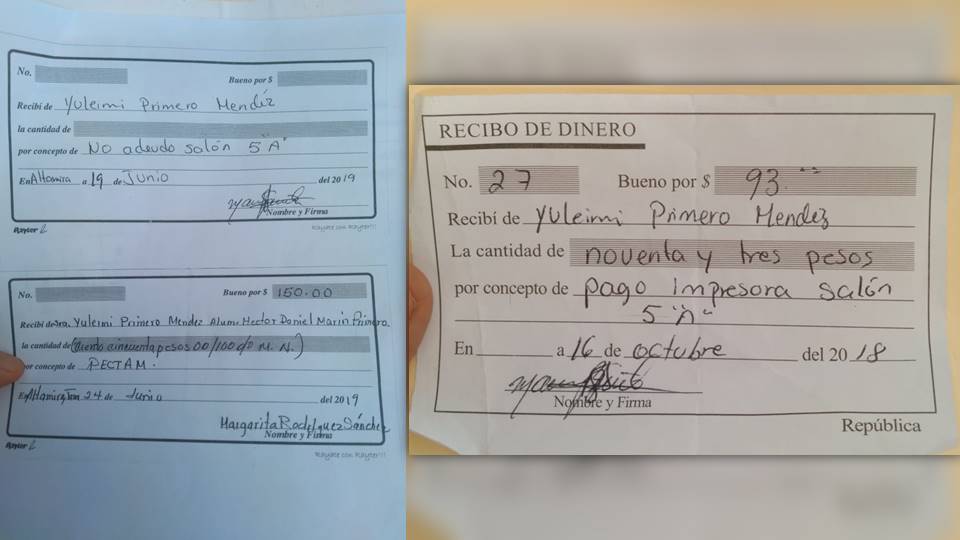 No.
Bueno por $
Recibí de Yuleimi Primero Mendéz
la cantidad de
por concepto de No adeudo salón 5 "A"
En Altamira a 19 de Junio del 2019
Nombre y Firma
Rayter
Rayate con Rayter!!!
No.
Bueno por $ 150.00
Recibí de Sra. Yuleimi Primero Mendez Alum. Hector Daniel Marin Primero.
la cantidad de (ciento cincuenta pesos 00/100 M. N.)
por concepto de PECTAM.
En Altamira, Tam 24 de Junio del 2019
Margarita Rodríguez Sánchez
Nombre y Firma
Rayter
Rayate con Rayter!!!
RECIBO DE DINERO
No. 27 Bueno por $ 93.
Recibí de Yuleimi Primero Mendez
La cantidad de noventa y tres pesos
por concepto de pago impresora salón
5 "A"
En a 16 de octubre del 2018
Nombre y Firma
República